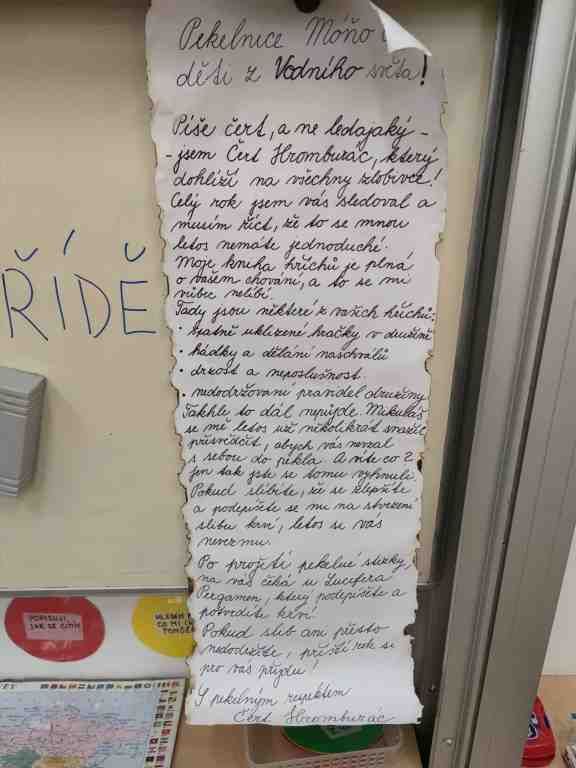 Pekelnice Móňo
děti z Vodního světa!
Píše čert, a ne ledajaký -
- jsem Čert Hromburác, který
dohlíží na všechny zlobivce!
Celý rok jsem vás sledoval a
musím říct, že to se mnou
letos nemáte jednoduché.
Moje kniha hříchů je plná
o vašem chování, a to se mi
vůbec nelíbí.
Tady jsou některé z vašich hříchů:
• špatně uklizené hračky v družině
• hádky a dělání naschválů
• drzost a neposlušnost.
• nedodržování pravidel družiny
Takhle to dál nepůjde. Mikuláš
se mě letos už několikrát snažil
přesvědčit, abych vás nevzal
s sebou do pekla. A víte co?
jen tak jste se tomu vyhnuli.
Pokud slíbíte, že se zlepšíte
a podepíšete se mi na stvrzení
slibu krví, letos si vás
nevezmu.
Po projetí pekelné stezky,
na vás čeká u Lucifera
Pergamen, který podepíšete a
potvrdíte krví.
Pokud slib ani přesto
nedodržíte, příští rok si
pro vás přijdu!
S pekelným respektem
Čert Hromburác
ŘÍDĚ
POPISUJI,
JAK SE CÍTÍM